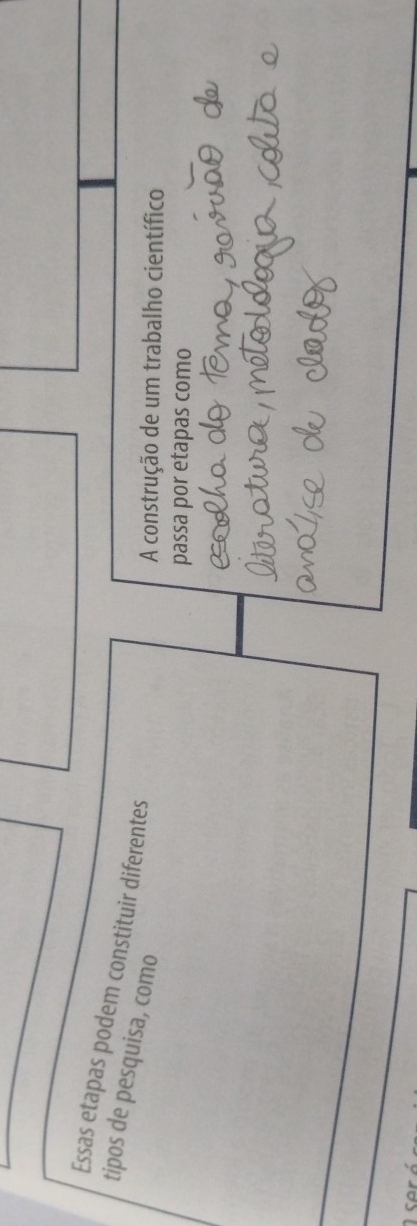 A construção de um trabalho científico
passa por etapas como
escolha do tema, revisão de
literatura, metodologia, coleta e
análise de dados
Essas etapas podem constituir diferentes
tipos de pesquisa, como